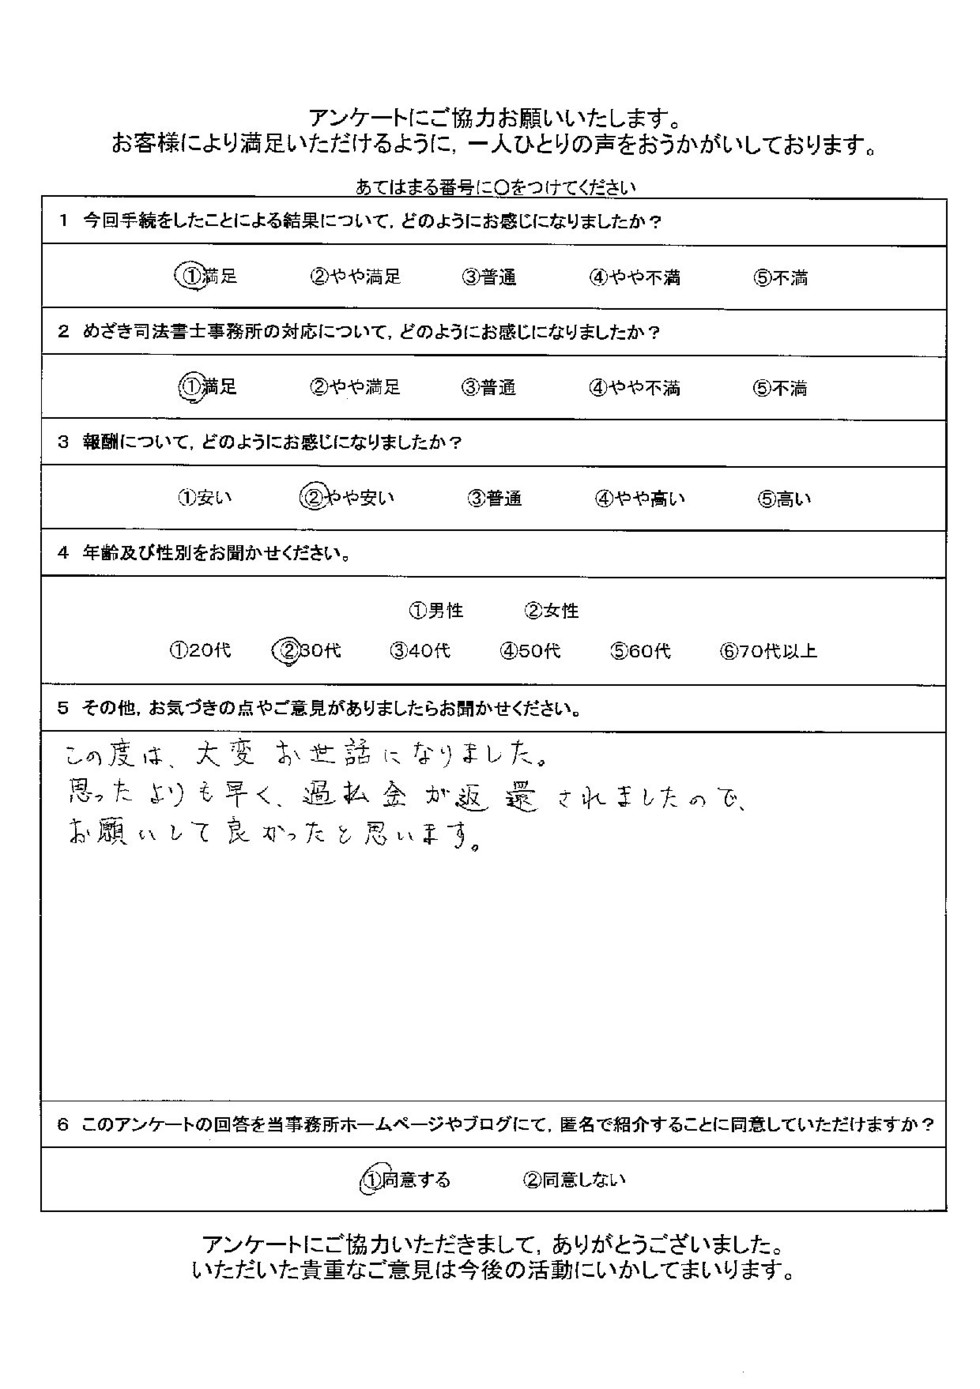 アンケートにご協力お願いいたします。
お客様により満足いただけるように，一人ひとりの声をおうかがいしております。
あてはまる番号に○をつけてください
1 今回手続をしたことによる結果について，どのようにお感じになりましたか？
①満足 ②やや満足 ③普通 ④やや不満 ⑤不満
2 めざき司法書士事務所の対応について，どのようにお感じになりましたか？
①満足 ②やや満足 ③普通 ④やや不満 ⑤不満
3 報酬について，どのようにお感じになりましたか？
①安い ②やや安い ③普通 ④やや高い ⑤高い
4 年齢及び性別をお聞かせください。
①男性 ②女性
①20代 ②30代 ③40代 ④50代 ⑤60代 ⑥70代以上
5 その他，お気づきの点やご意見がありましたらお聞かせください。
この度は、大変お世話になりました。
思ったよりも早く、過払金が返還されましたので、
お願いして良かったと思います。
6 このアンケートの回答を当事務所ホームページやブログにて，匿名で紹介することに同意していただけますか？
①同意する ②同意しない
アンケートにご協力いただきまして，ありがとうございました。
いただいた貴重なご意見は今後の活動にいかしてまいります。